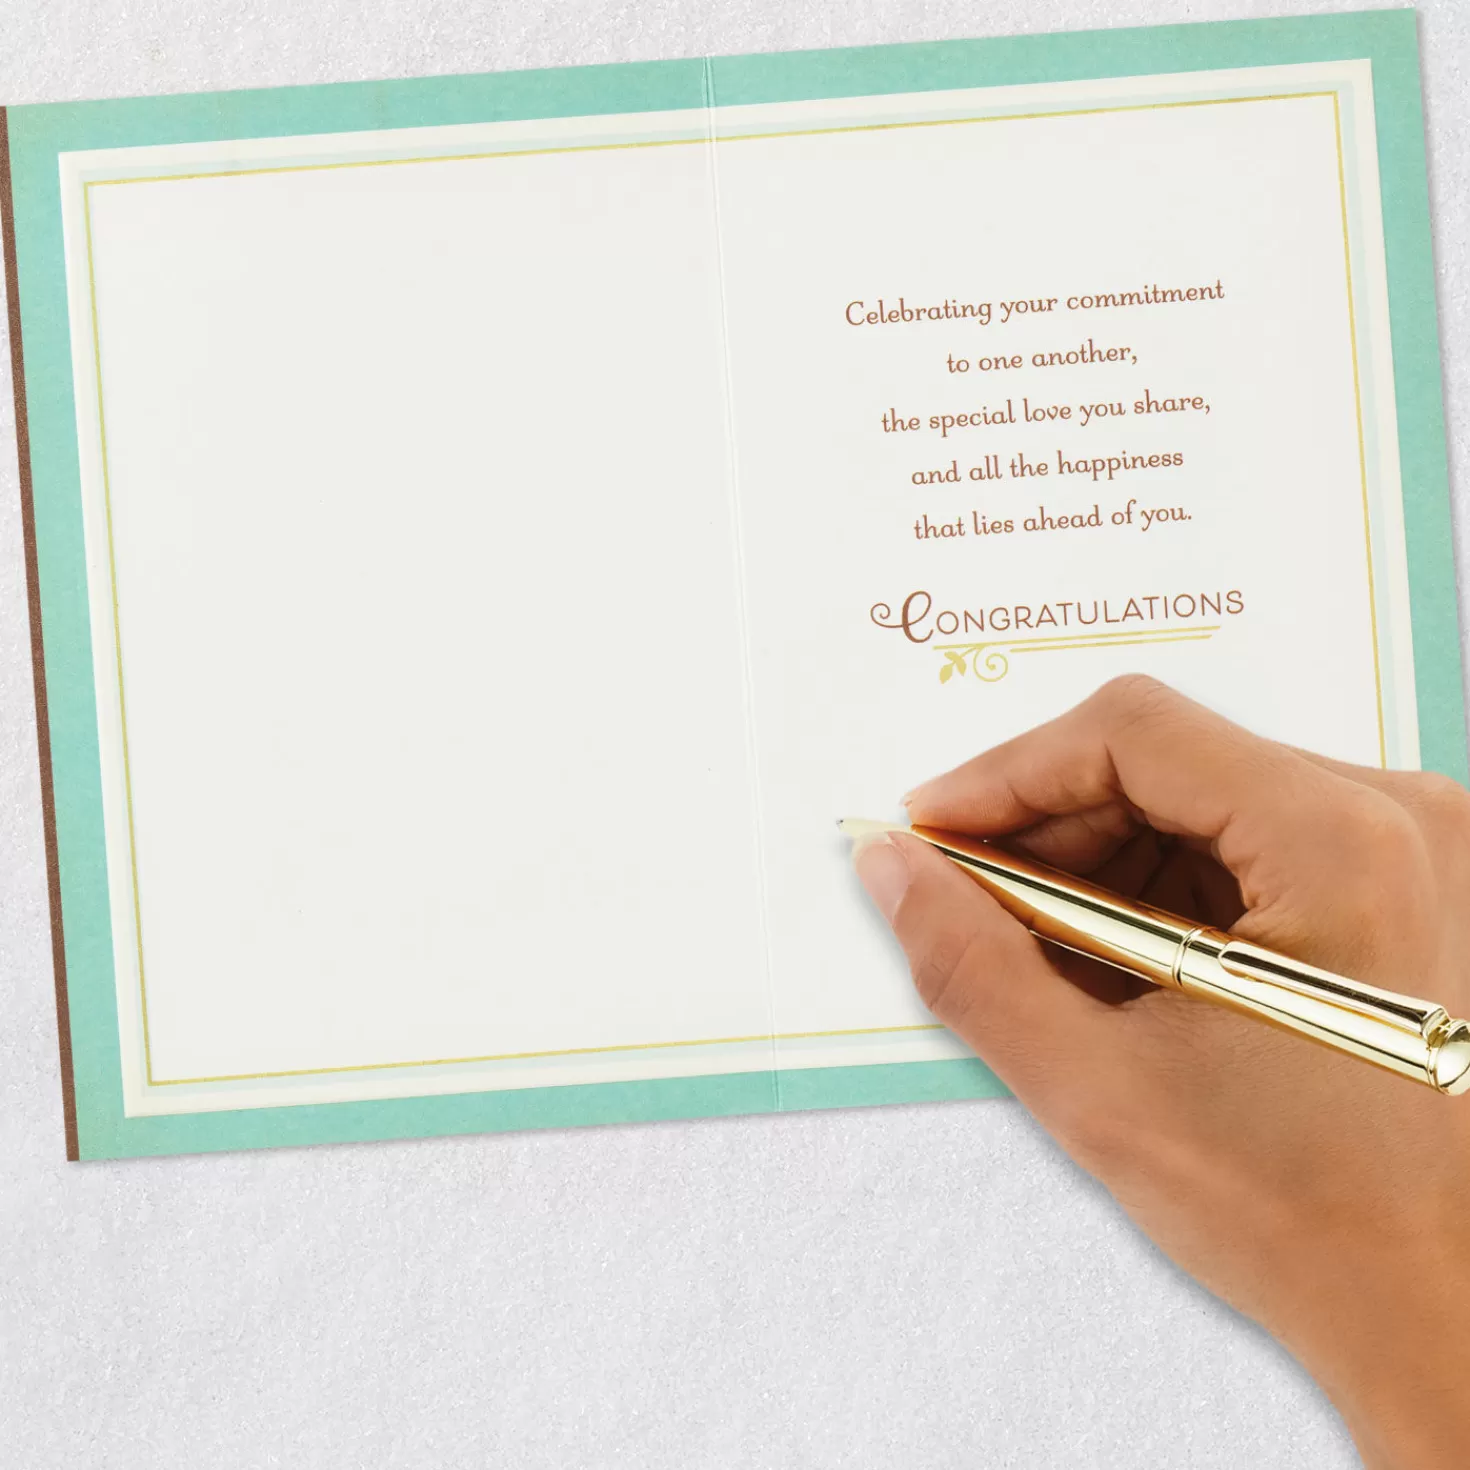 Celebrating your commitment
to one another,
the special love you share,
and all the happiness
that lies ahead of you.
CONGRATULATIONS